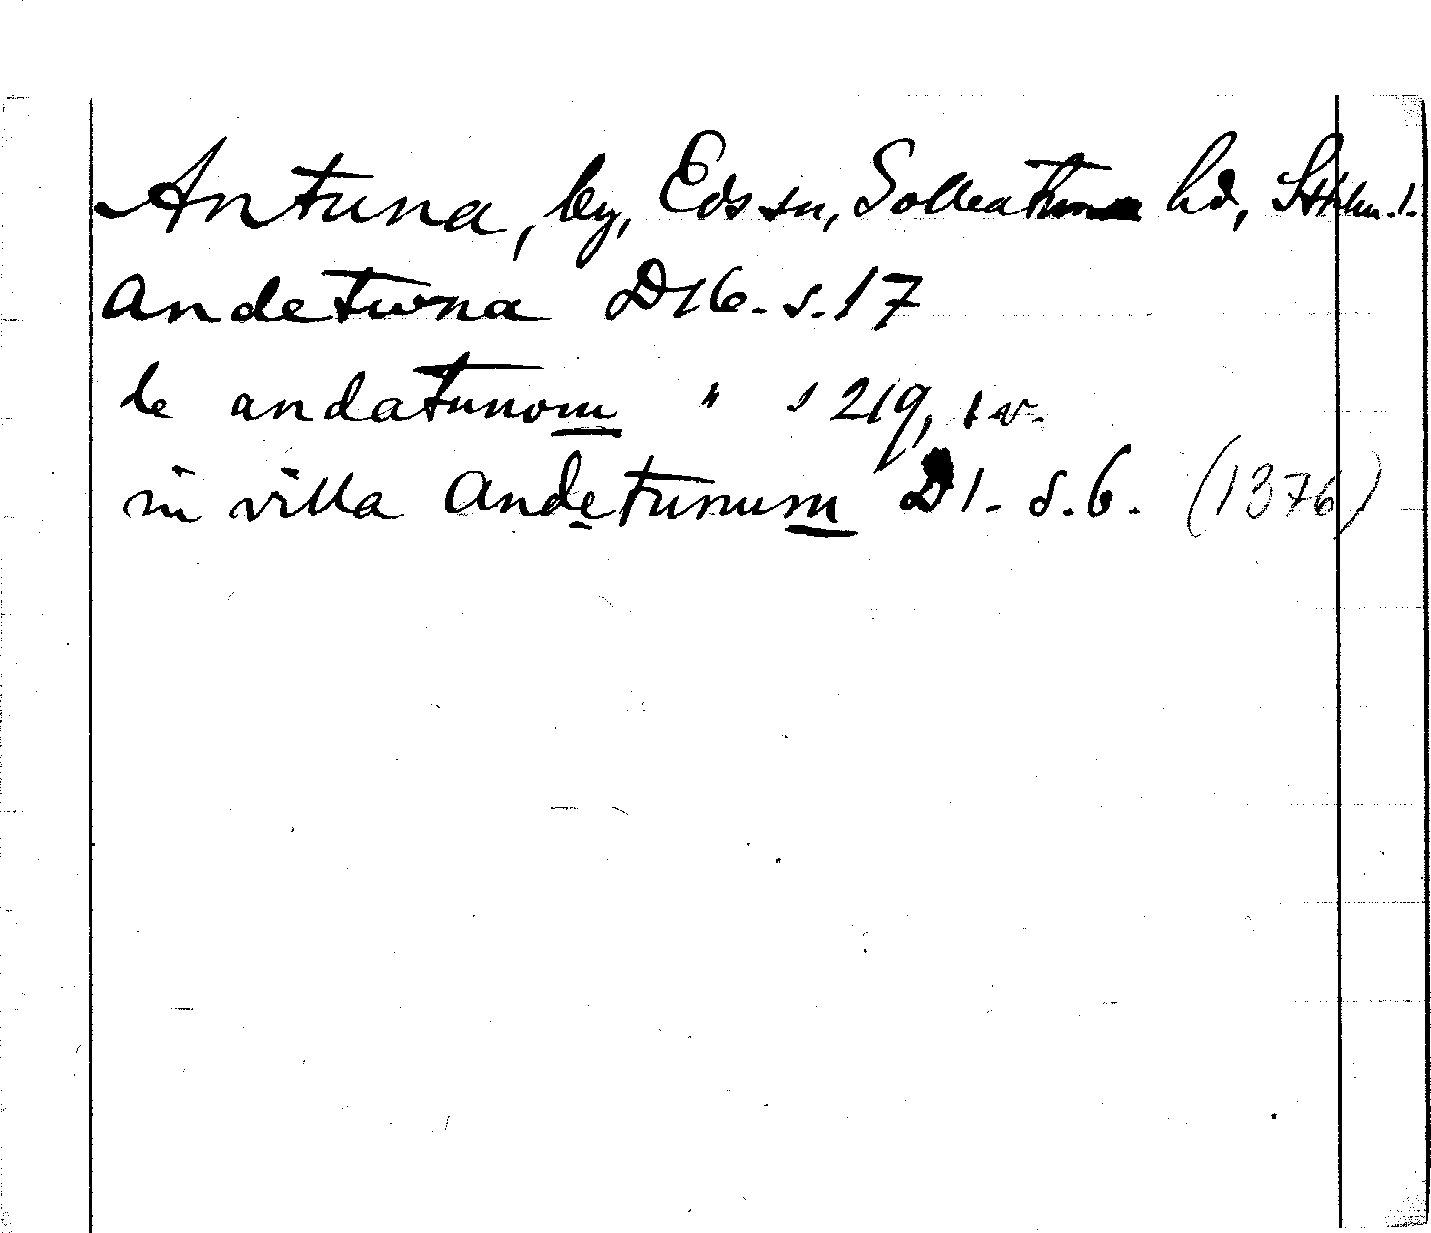 Antuna, by, Eds sn, Sollentuna hd, Sthlm. l.
Andetuna D 16. s. 17
de andatunom " s 219, 1 v.
in villa Andetunum D 1. s. 6. (1376)